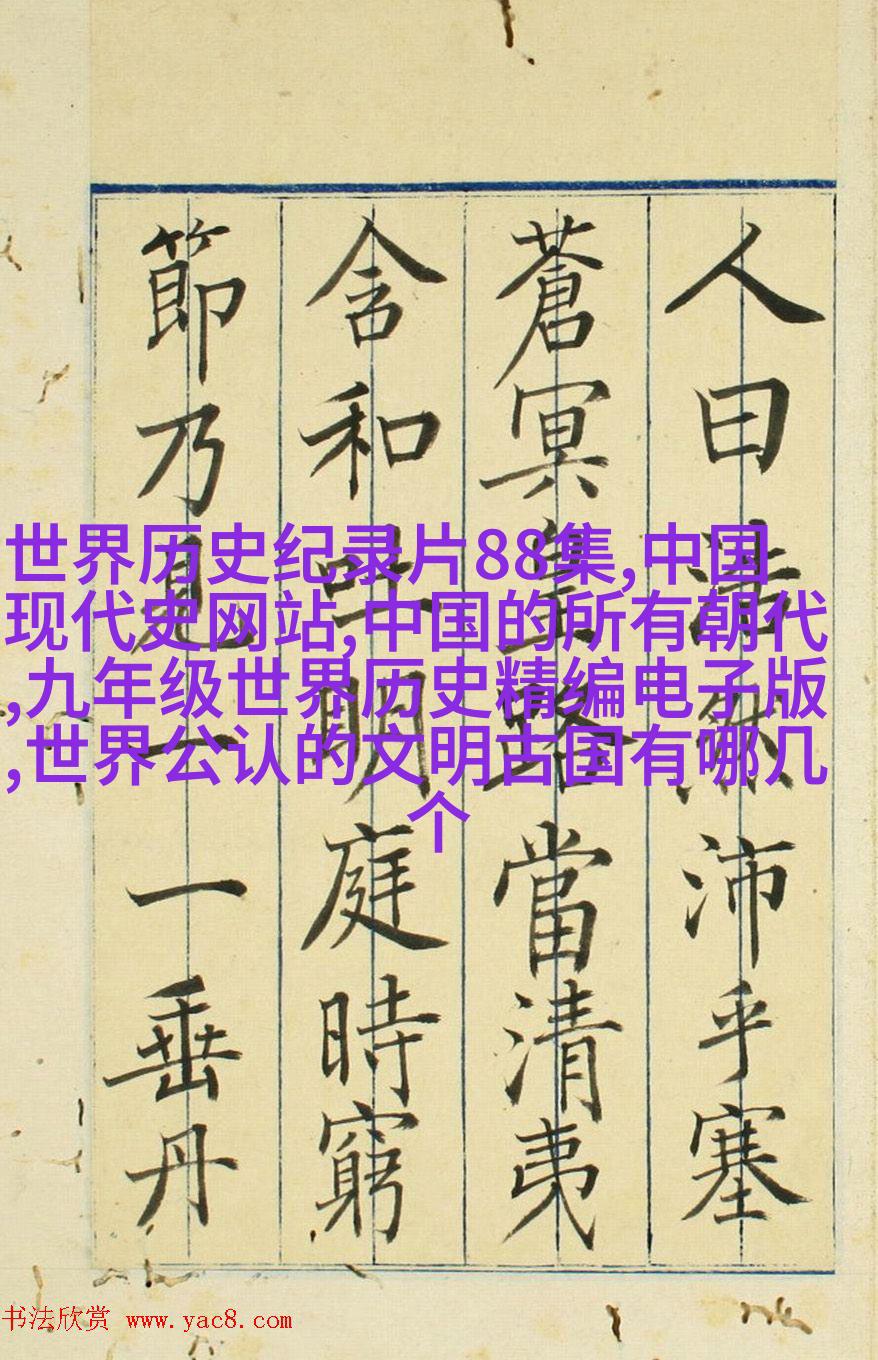 人曰浩然沛乎塞
蒼冥皇路當清夷
含和吐明庭時窮
節乃見一一垂丹
世界历史纪录片88集,中国
现代史网站,中国的所有朝代
,九年级世界历史精编电子版
,世界公认的文明古国有哪几
个
书法欣赏 www.yac8.com